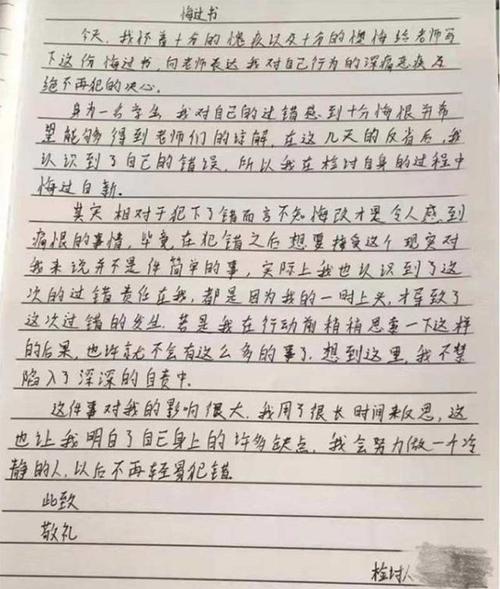 悔过书
今天,我怀着十分的愧疚以及十分的懊悔给老师写
下这份悔过书,向老师表达我对自己行为的深痛恶疾及
绝不再犯的决心。
身为一名学生,我对自己的过错感到十分悔恨并希
望能够得到老师们的谅解,在这几天的反省后,我
认识到了自己的错误,所以我在检讨自身的过程中
悔过自新.
其实,相对于犯下了错而言不知悔改才是令人感到
痛恨的事情,毕竟在犯错之后想要接受这个现实对
我来说并不是件简单的事,实际上我也认识到了这
次的过错责任在我,都是因为我的一时上头,才导致了
这次过错的发生.若是我在行动前稍稍思索一下这样
的后果,也许就不会有这么多的事了.想到这里,我不禁
陷入了深深的自责中.
这件事对我的影响很大,我用了很长时间来反思,这
也让我明白了自己身上的许多缺点,我会努力做一个冷
静的人,以后不再轻易犯错.
此致
敬礼
检讨人